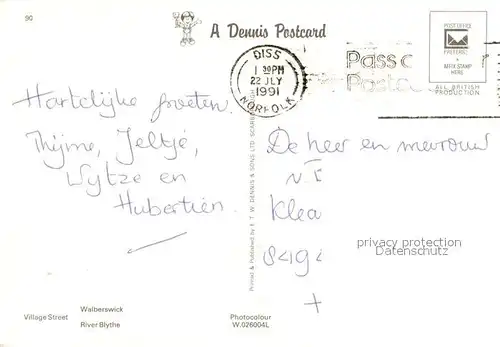 90
A Dennis Postcard
POST OFFICE
PREFERRED
AFFIX STAMP
HERE
ALL BRITISH
PRODUCTION
DISS
1 30PM
22 JLY
1991
NORFOLK
Hartelijke groeten
Thijme, Jeltje,
Wytze en
Hubertien.
De heer en mevrouw
Klea
privacy protection
Datenschutz
Printed & Published by E. T. W. DENNIS & SONS LTD. SCARBOROUGH
Village Street
Walberswick
River Blythe
Photocolour
W.026004L